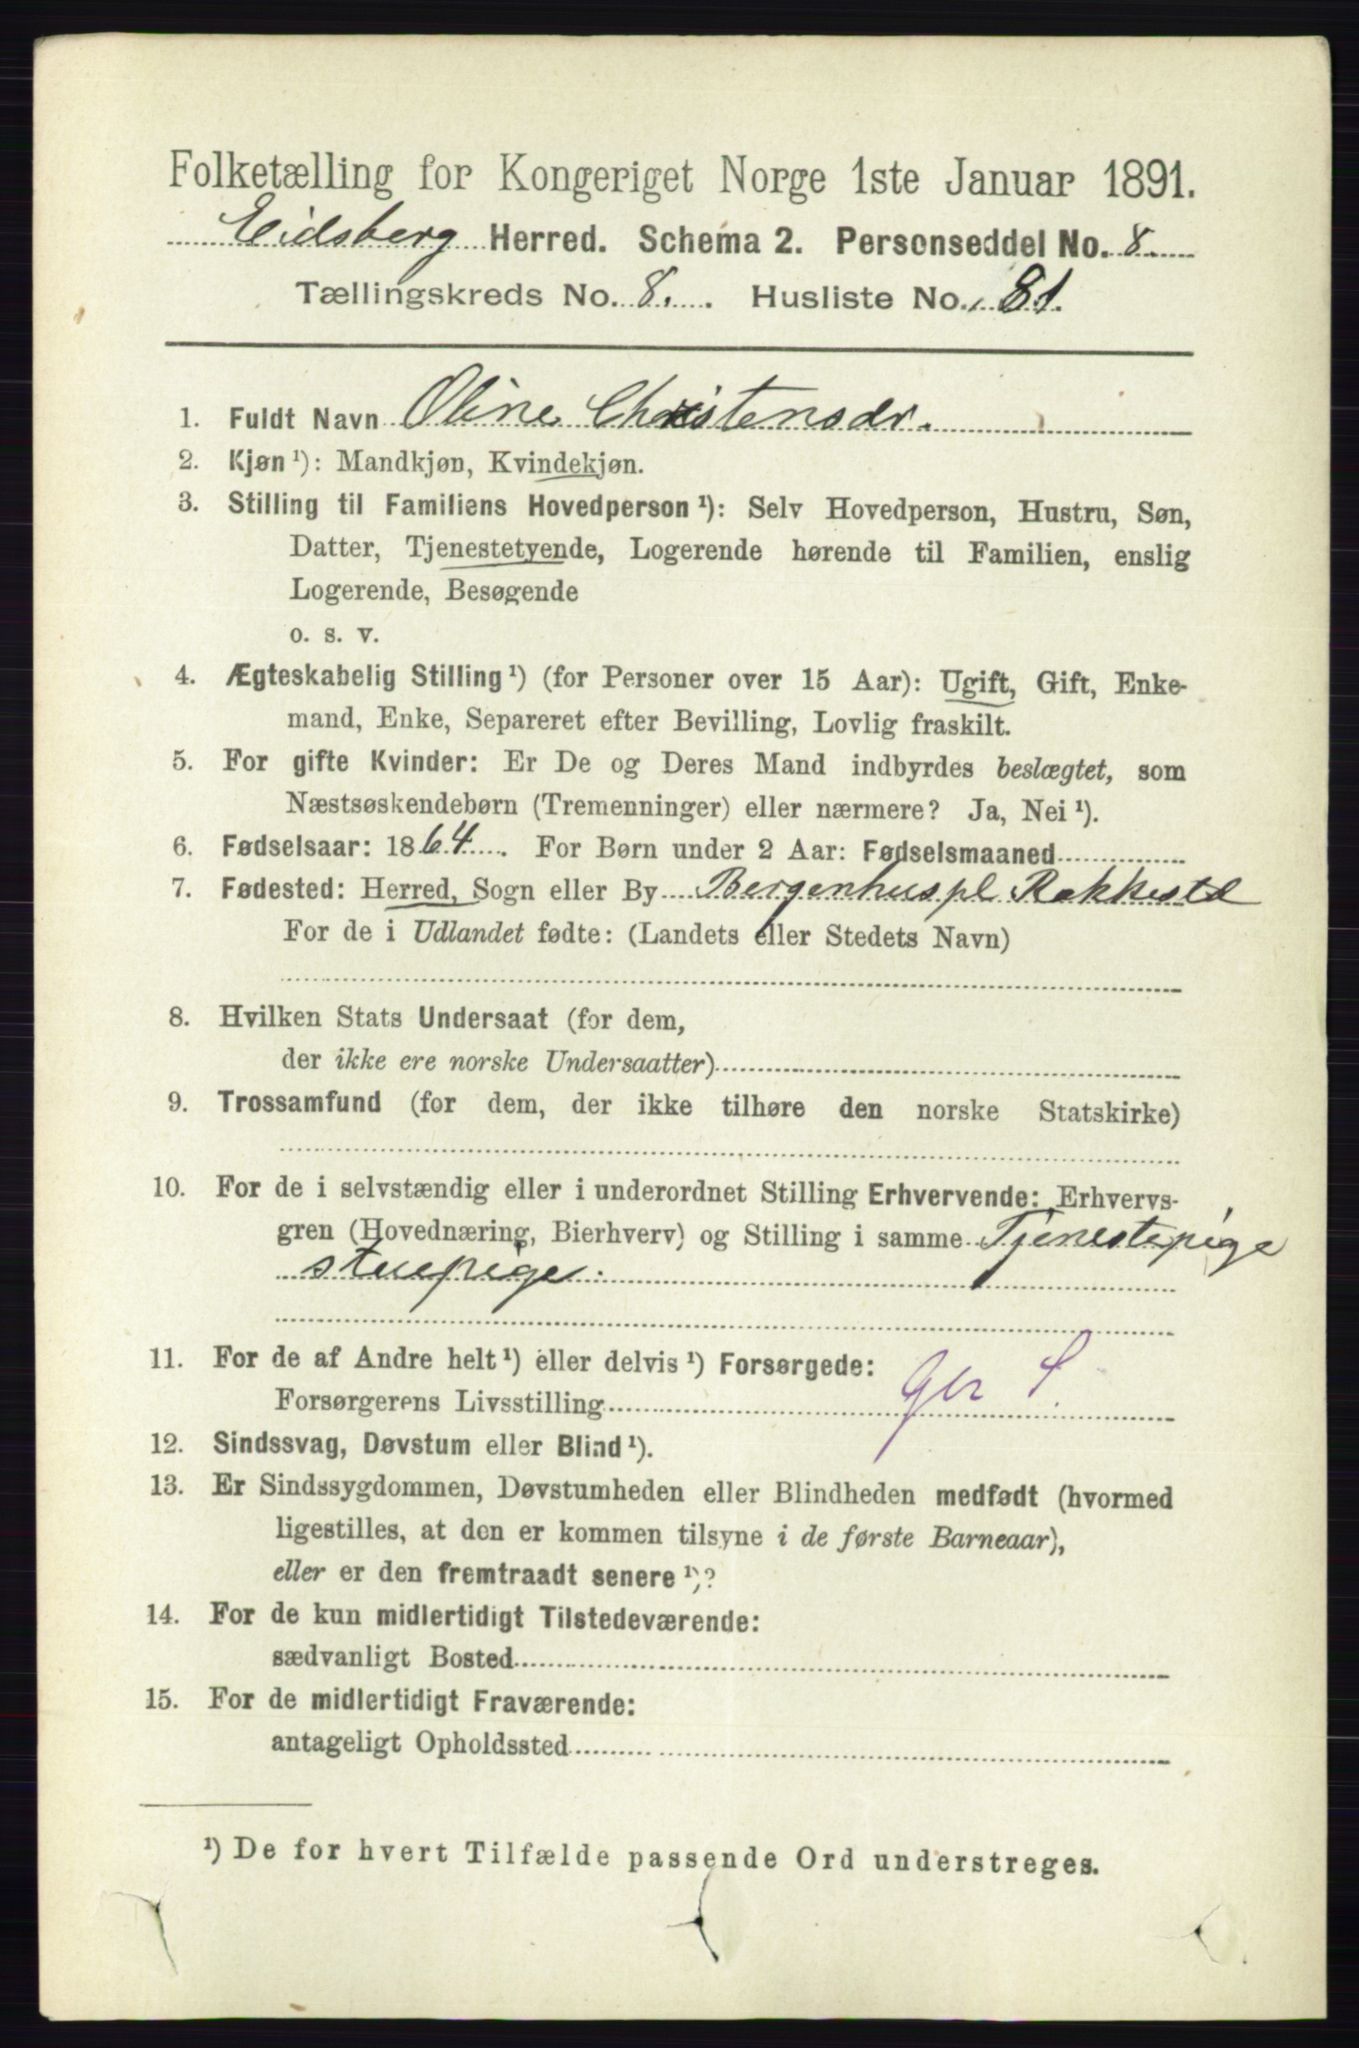 Folketælling for Kongeriget Norge 1ste Januar 1891.
Eidsberg Herred. Schema 2. Personseddel No. 8.
Tællingskreds No. 8. Husliste No. 81.
1. Fuldt Navn Oline Christensdr.
2. Kjøn ¹): Mandkjøn, Kvindekjøn.
3. Stilling til Familiens Hovedperson ¹): Selv Hovedperson, Hustru, Søn,
Datter, Tjenestetyende, Logerende hørende til Familien, enslig
Logerende, Besøgende
o. s. v.
4. Ægteskabelig Stilling ¹) (for Personer over 15 Aar): Ugift, Gift, Enke-
mand, Enke, Separeret efter Bevilling, Lovlig fraskilt.
5. For gifte Kvinder: Er De og Deres Mand indbyrdes beslægtet, som
Næstsøskendebørn (Tremenninger) eller nærmere? Ja, Nei ¹).
6. Fødselsaar: 1864. For Børn under 2 Aar: Fødselsmaaned
7. Fødested: Herred, Sogn eller By Bergenhuspl Rakkestd
For de i Udlandet fødte: (Landets eller Stedets Navn)
8. Hvilken Stats Undersaat (for dem,
der ikke ere norske Undersaatter)
9. Trossamfund (for dem, der ikke tilhøre den norske Statskirke)
10. For de i selvstændig eller i underordnet Stilling Erhvervende: Erhvervs-
gren (Hovednæring, Bierhverv) og Stilling i samme Tjenestepige
stuepige.
11. For de af Andre helt ¹) eller delvis ¹) Forsørgede:
Forsørgerens Livsstilling
12. Sindssvag, Døvstum eller Blind ¹).
13. Er Sindssygdommen, Døvstumheden eller Blindheden medfødt (hvormed
ligestilles, at den er kommen tilsyne i de første Barneaar),
eller er den fremtraadt senere ¹)?
14. For de kun midlertidigt Tilstedeværende:
sædvanligt Bosted
15. For de midlertidigt Fraværende:
antageligt Opholdssted
¹) De for hvert Tilfælde passende Ord understreges.